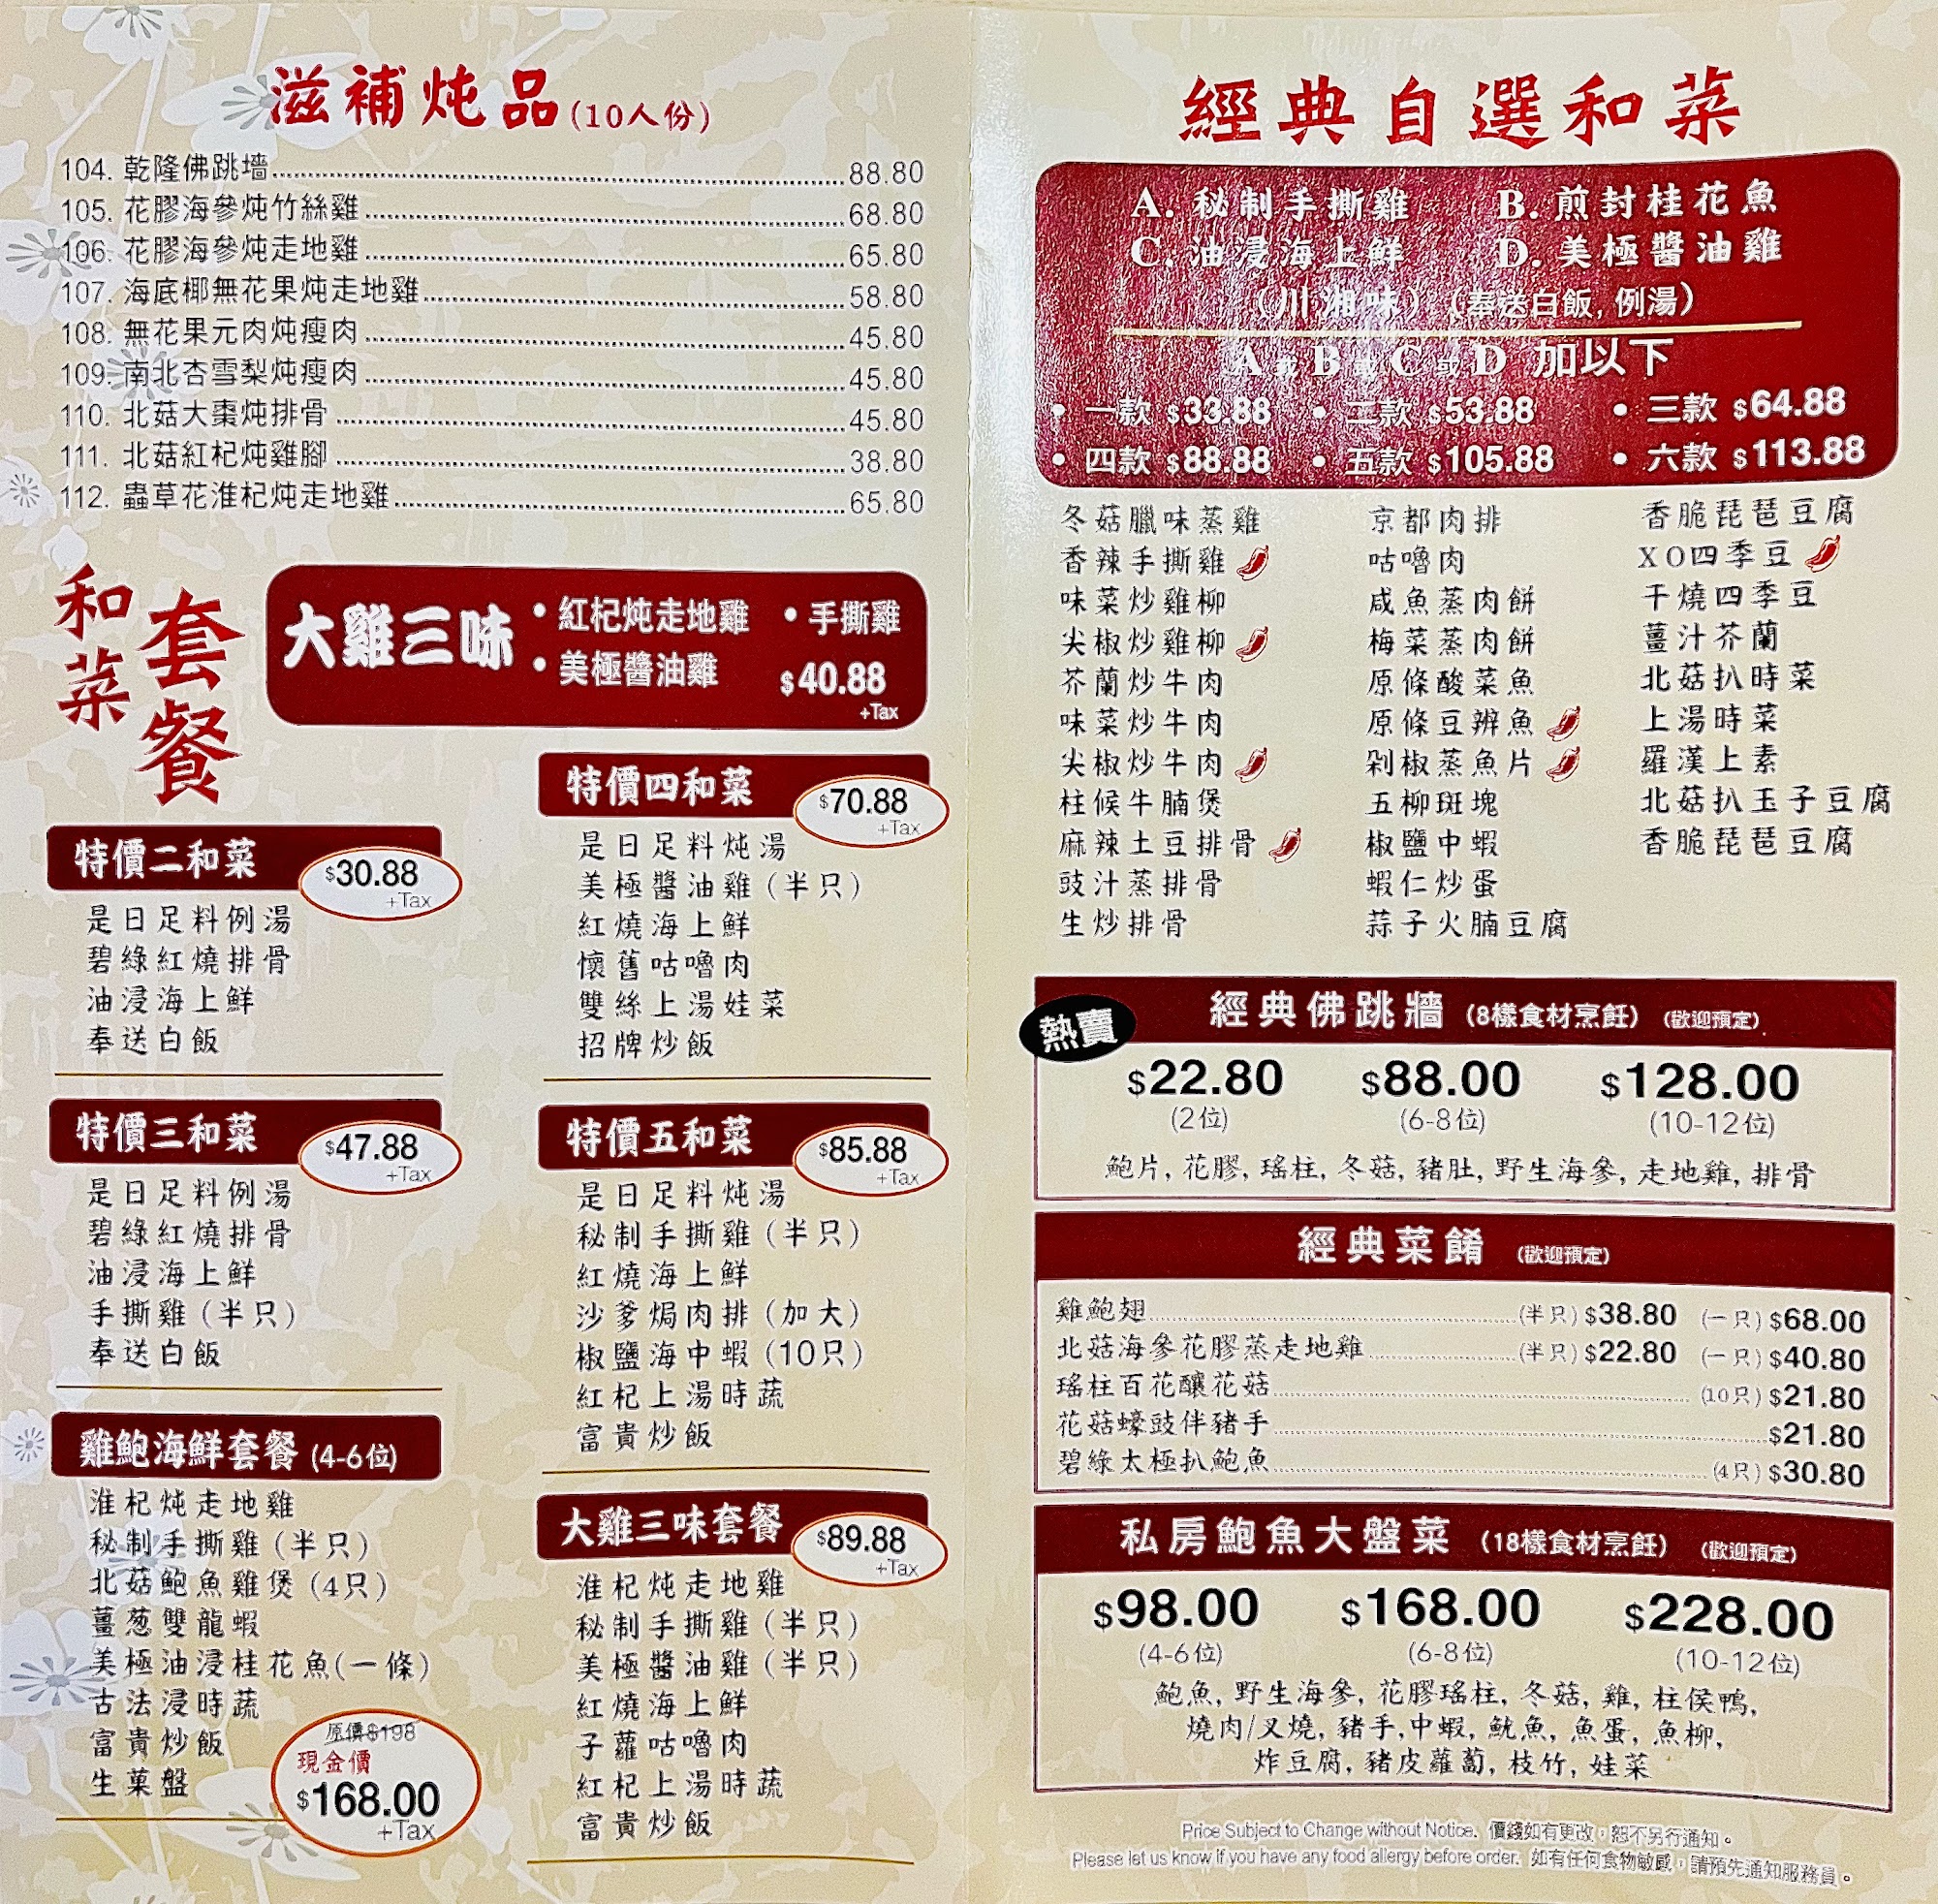 滋補炖品(10人份)
104. 乾隆佛跳墻 88.80
105. 花膠海參炖竹絲雞 68.80
106. 花膠海參炖走地雞 65.80
107. 海底椰無花果炖走地雞 58.80
108. 無花果元肉炖瘦肉 45.80
109. 南北杏雪梨炖瘦肉 45.80
110. 北菇大棗炖排骨 45.80
111. 北菇紅杞炖雞腳 38.80
112. 蟲草花淮杞炖走地雞 65.80
和菜套餐
大雞三味 • 紅杞炖走地雞 • 手撕雞
• 美極醬油雞 $40.88
+Tax
特價二和菜 $30.88
+Tax
是日足料例湯
碧綠紅燒排骨
油浸海上鮮
奉送白飯
特價三和菜 $47.88
+Tax
是日足料例湯
碧綠紅燒排骨
油浸海上鮮
手撕雞 (半只)
奉送白飯
雞鮑海鮮套餐 (4-6位)
淮杞炖走地雞
秘制手撕雞 (半只)
北菇鮑魚雞煲 (4只)
薑葱雙龍蝦
美極油浸桂花魚(一條)
古法浸時蔬
富貴炒飯
生菓盤
原價$198
現金價
$168.00
+Tax
特價四和菜 $70.88
+Tax
是日足料炖湯
美極醬油雞 (半只)
紅燒海上鮮
懷舊咕嚕肉
雙絲上湯娃菜
招牌炒飯
特價五和菜 $85.88
+Tax
是日足料炖湯
秘制手撕雞 (半只)
紅燒海上鮮
沙爹焗肉排 (加大)
椒鹽海中蝦 (10只)
紅杞上湯時蔬
富貴炒飯
大雞三味套餐 $89.88
+Tax
淮杞炖走地雞
秘制手撕雞 (半只)
美極醬油雞 (半只)
紅燒海上鮮
子蘿咕嚕肉
紅杞上湯時蔬
富貴炒飯
經典自選和菜
A. 秘制手撕雞 B. 煎封桂花魚
C. 油浸海上鮮 D. 美極醬油雞
(川湘味) (奉送白飯, 例湯)
A或B或C或D 加以下
• 一款 $33.88 • 二款 $53.88 • 三款 $64.88
• 四款 $88.88 • 五款 $105.88 • 六款 $113.88
冬菇臘味蒸雞
香辣手撕雞
味菜炒雞柳
尖椒炒雞柳
芥蘭炒牛肉
味菜炒牛肉
尖椒炒牛肉
柱候牛腩煲
麻辣土豆排骨
豉汁蒸排骨
生炒排骨
京都肉排
咕嚕肉
咸魚蒸肉餅
梅菜蒸肉餅
原條酸菜魚
原條豆辨魚
剁椒蒸魚片
五柳斑塊
椒鹽中蝦
蝦仁炒蛋
蒜子火腩豆腐
香脆琵琶豆腐
XO四季豆
干燒四季豆
薑汁芥蘭
北菇扒時菜
上湯時菜
羅漢上素
北菇扒玉子豆腐
香脆琵琶豆腐
熱賣
經典佛跳牆 (8樣食材烹飪) (歡迎預定)
$22.80 $88.00 $128.00
(2位) (6-8位) (10-12位)
鮑片, 花膠, 瑤柱, 冬菇, 豬肚, 野生海參, 走地雞, 排骨
經典菜餚 (歡迎預定)
雞鮑翅 (半只) $38.80 (一只) $68.00
北菇海參花膠蒸走地雞 (半只) $22.80 (一只) $40.80
瑤柱百花釀花菇 (10只) $21.80
花菇蠔豉伴豬手 $21.80
碧綠太極扒鮑魚 (4只) $30.80
私房鮑魚大盤菜 (18樣食材烹飪) (歡迎預定)
$98.00 $168.00 $228.00
(4-6位) (6-8位) (10-12位)
鮑魚, 野生海參, 花膠瑤柱, 冬菇, 雞, 柱侯鴨,
燒肉/叉燒, 豬手,中蝦, 魷魚, 魚蛋, 魚柳,
炸豆腐, 豬皮蘿蔔, 枝竹, 娃菜
Price Subject to Change without Notice. 價錢如有更改，恕不另行通知。
Please let us know if you have any food allergy before order. 如有任何食物敏感，請預先通知服務員。